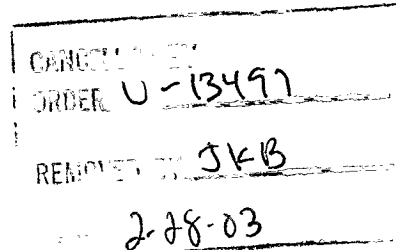 CANCELLED BY
ORDER U-13497
REMOVED BY JKB
2-28-03